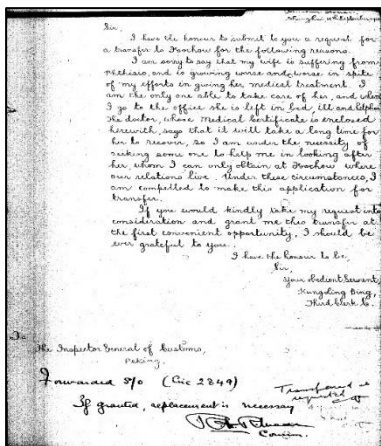 Sir,
I have the honour to submit to you a request for
a transfer to Foochow for the following reasons.
I am sorry to say that my wife is suffering from
Phthisis, and is growing worse and worse in spite
of my efforts in giving her medical treatment. I
am the only one able to take care of her, and when
I go to the office she is left in bed, ill and helpless.
The doctor, whose Medical Certificate is enclosed
herewith, says that it will take a long time for
her to recover, so I am under the necessity of
seeking some one to help me in looking after
her, whom I can only obtain at Foochow where
our relations live. Under these circumstances, I
am compelled to make this application for
transfer.
If you would kindly take my request into
consideration and grant me this transfer at
the first convenient opportunity, I should be
ever grateful to you.
I have the honour to be,
Sir,
Your obedient Servant,
Kungling Bing,
Third Clerk C.
To
The Inspector General of Customs,
Peking.
Forwarded S/O (Circ 2849)
Transferred as
requested
If granted, replacement is necessary
Comm.